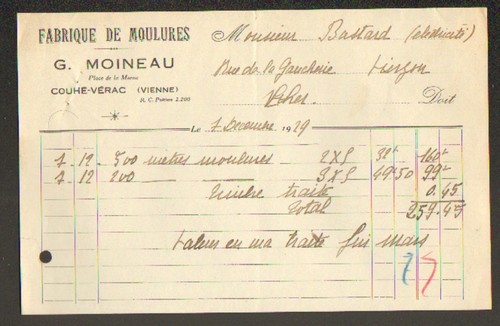 FABRIQUE DE MOULURES
G. MOINEAU
Place de la Marne
COUHÉ-VÉRAC (VIENNE)
R. C. Poitiers 2.200
Monsieur Bastard (électricité)
Rue de la Gaucherie Vierzon
Cher. Doit
Le 7 Décembre 1929
7. 12. 500 mètres moulures 2X5 32" 160"
7 12 200 — 3X5 49"50 99"
Timbre traite 0.45
Total 259.45
Valeur en ma traite fin Mars